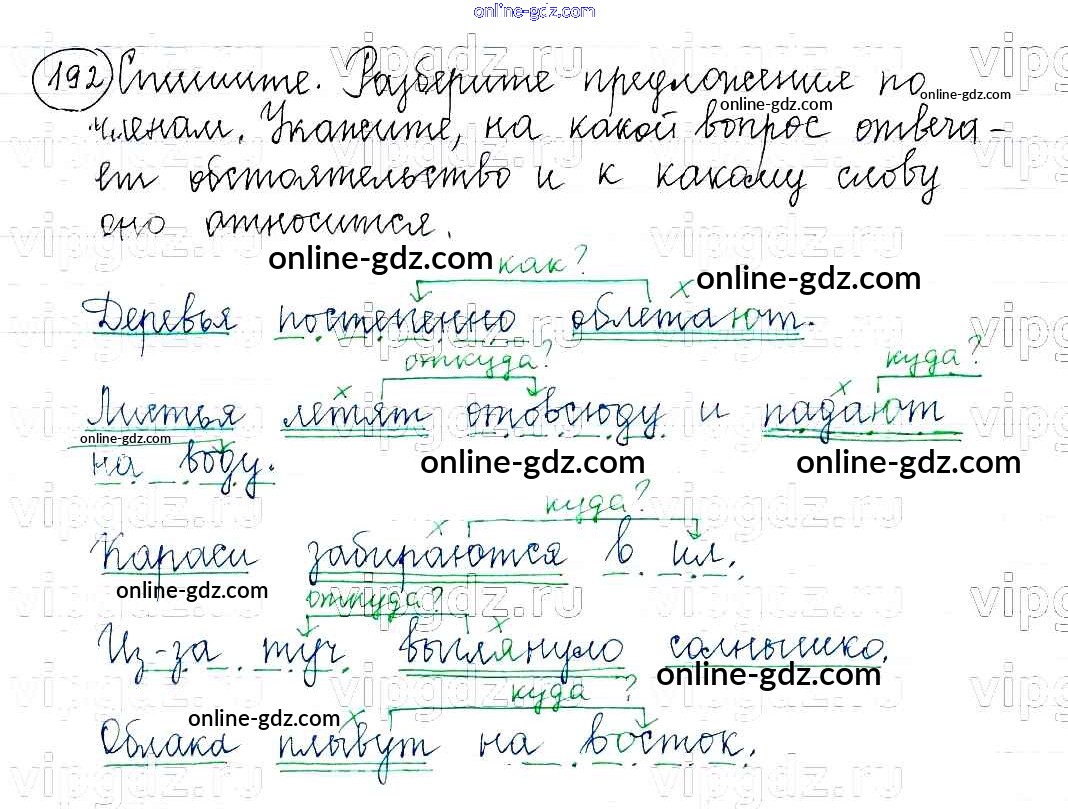 online-gdz.com
192 Спишите. Разберите предложения по
online-gdz.com
online-gdz.com
членам. Укажите, на какой вопрос отвеча-
ет обстоятельство и к какому слову
оно относится.
online-gdz.com
как?
online-gdz.com
Деревья постепенно облетают.
откуда?
куда?
Листья летят отовсюду и падают
online-gdz.com
на воду.
online-gdz.com
online-gdz.com
куда?
Караси забираются в ил.
online-gdz.com
откуда?
Из-за туч выглянуло солнышко.
online-gdz.com
куда?
online-gdz.com
Облака плывут на восток.
vipgdz.ru